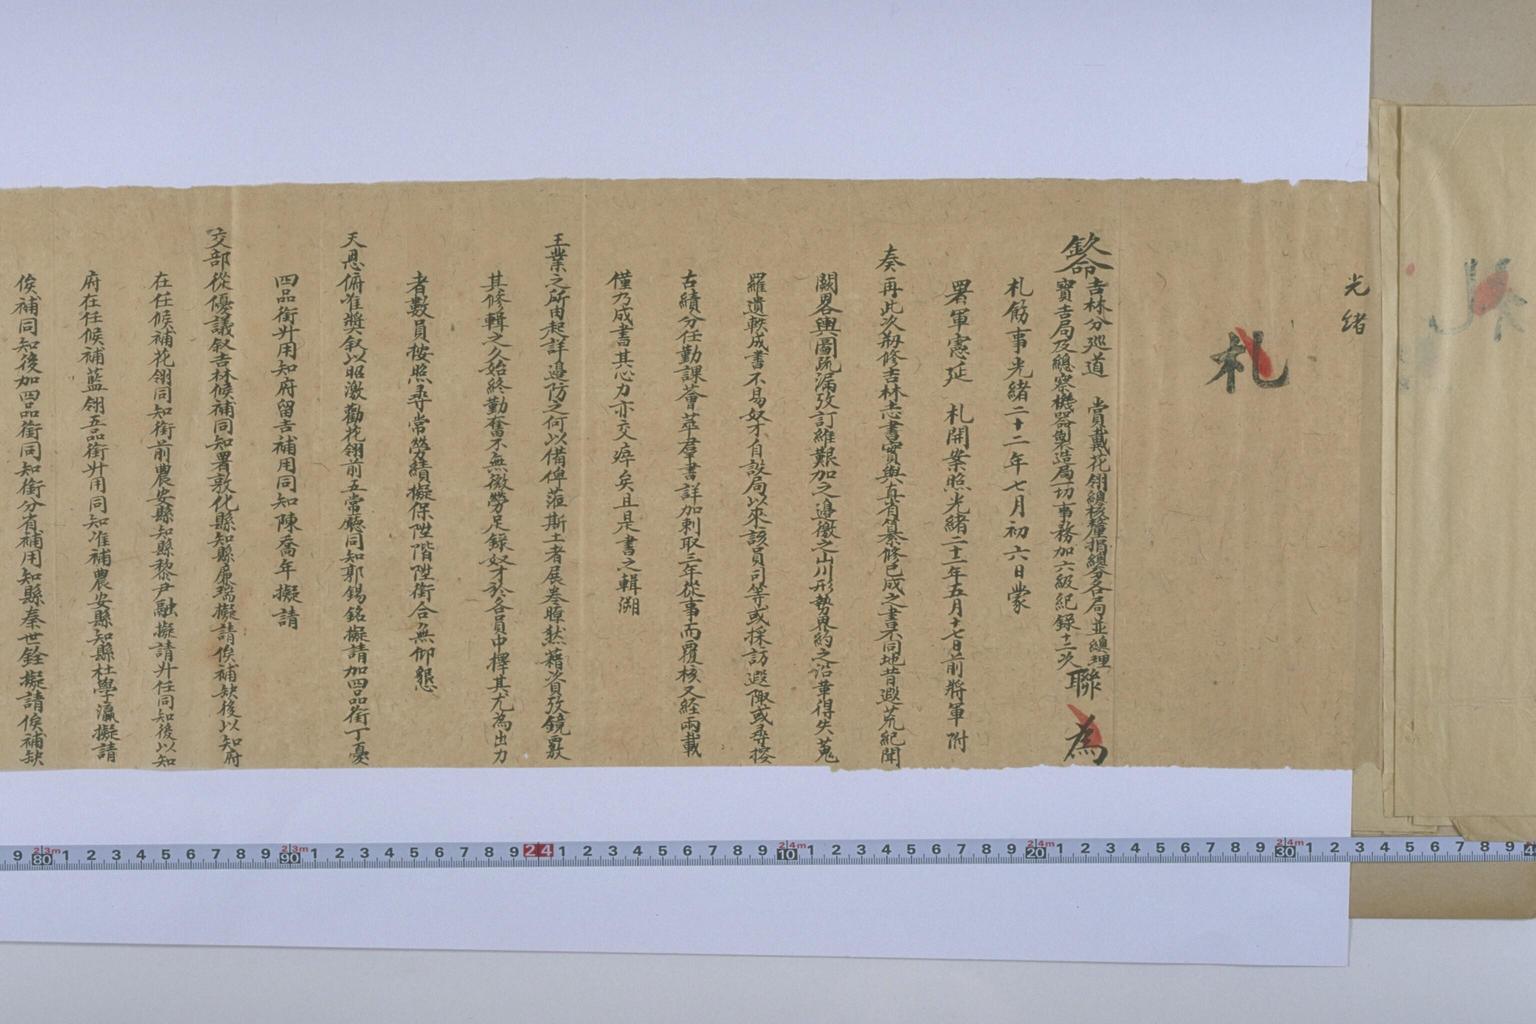 光緒
札
欽命吉林分巡道 賞戴花翎總核釐捐總分各局並總理
寶吉局及總察機器製造局一切事務加六級紀錄十二次 聯 為
札飭事光緒二十二年七月初六日蒙
署軍憲延 札開案照光緒二十二年五月十七日前將軍附
奏再此次剏修吉林志書實與直省纂修已成之書不同地昔遐荒紀聞
闕畧輿圖疏漏攷訂維艱加之邊徼之山川形勢界約之沿革得失蒐
羅遺軼成書不易奴才自設局以來該員司等或採訪遐陬或尋搜
古蹟分任勤課薈萃羣書詳加刺取三年從事而覆核又經兩載
僅乃成書其心力亦交瘁矣且是書之輯溯
王業之所由起詳邊防之何以備俾蒞斯土者展卷瞭然藉資攷鏡覈
其修輯之久始終勤奮不無微勞足錄奴才於各員中擇其尤為出力
者數員按照尋常勞績擬保陞階陞銜合無仰懇
天恩俯准獎敘以昭激勸花翎前五常廳同知郭錫銘擬請加四品銜丁憂
四品銜升用知府留吉補用同知陳喬年擬請
交部從優議敘吉林候補同知署敦化縣知縣廉瑞擬請俟補缺後以知府
在任候補花翎同知銜前農安縣知縣黎尹融擬請升任同知後以知
府在任候補藍翎五品銜升用同知准補農安縣知縣杜學瀛擬請
俟補同知後加四品銜同知銜分省補用知縣秦世銓擬請俟補缺